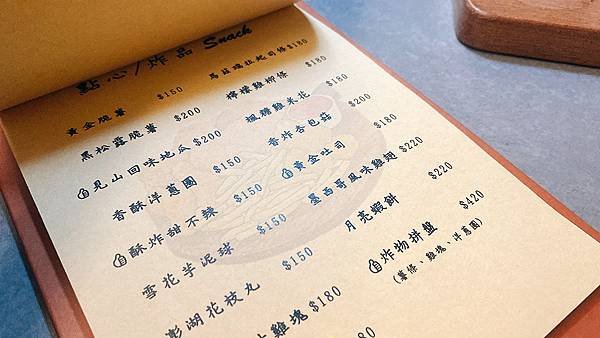 點心/炸品 Snack
黃金脆薯 $150
黑松露脆薯 $200
見山回味地瓜 $200
香酥洋蔥圈 $150
酥炸甜不辣 $150
雪花芋泥球 $150
澎湖花枝丸 $150
雞塊 $180
80
馬茲瑞拉起司條 $180
檸檬雞柳條 $180
楓糖雞米花 $180
香炸杏包菇 $200
黃金吐司 $180
墨西哥風味雞翅 $220
月亮蝦餅 $220
炸物拼盤 $420
(薯條、雞塊、洋蔥圈)